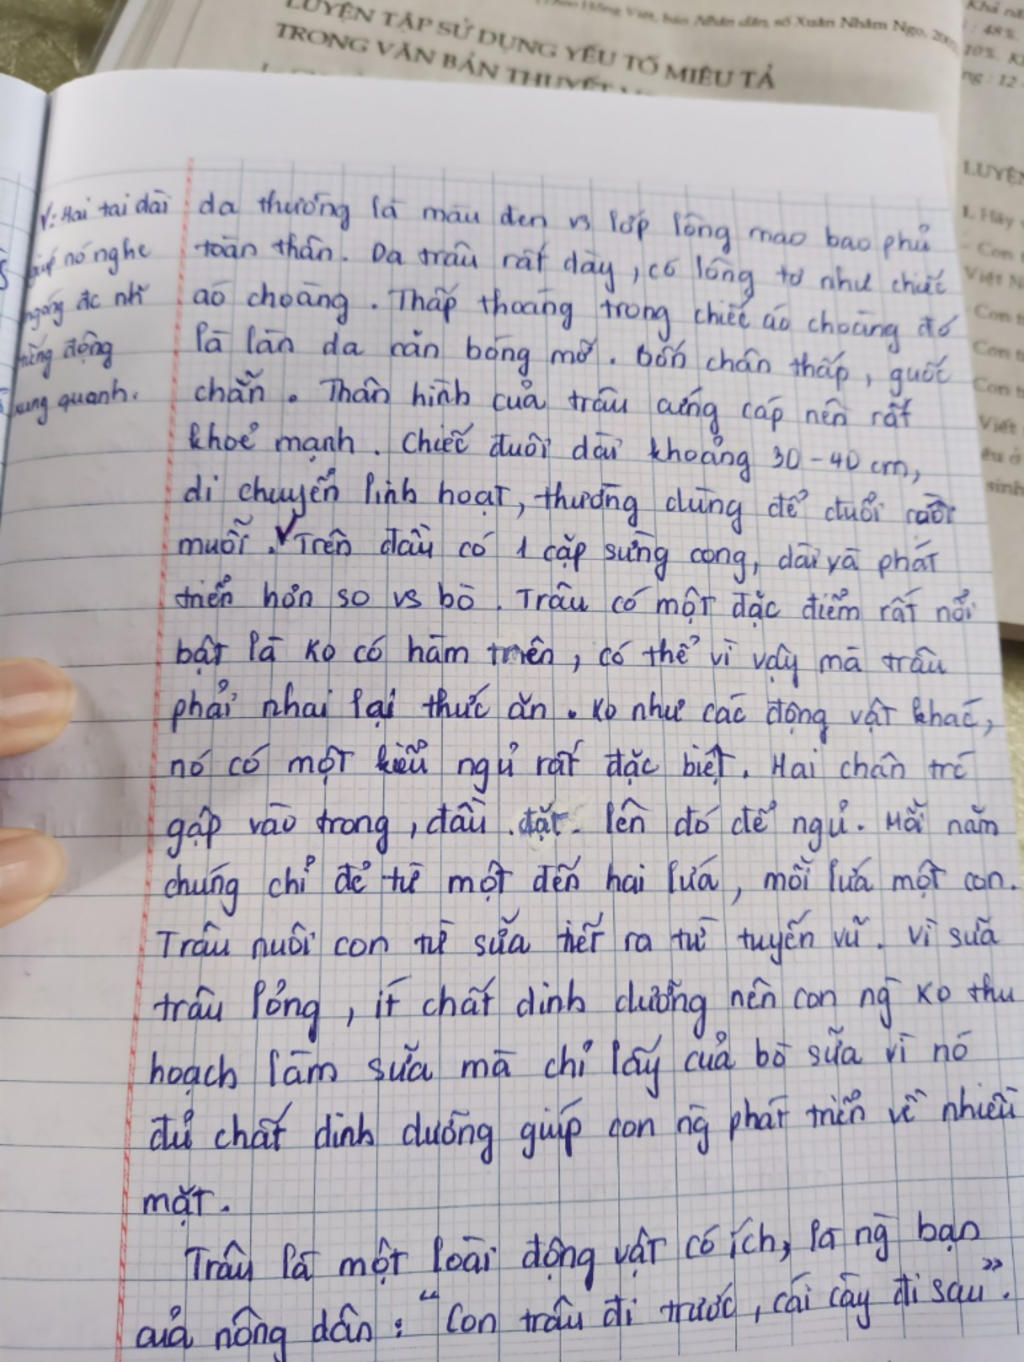 LUYỆN TẬP SỬ DỤNG YẾU TỐ MIÊU TẢ
TRONG VĂN BẢN THUYẾT
V: Hai tai dài
giúp nó nghe
ngóng đc nh~
tiếng động
xung quanh.
da thường là màu đen vs lớp lông mao bao phủ
toàn thân. Da trâu rất dày, có lông tơ như chiếc
áo choàng. Thấp thoáng trong chiếc áo choàng đó
là làn da căn bóng mỡ. Bốn chân thấp, guốc
chẵn. Thân hình của trâu cứng cáp nên rất
khoẻ mạnh. Chiếc đuôi dài khoảng 30-40 cm,
di chuyển linh hoạt, thường dùng để đuổi ruồi
muỗi. V Trên đầu có 1 cặp sừng cong, dài và phát
triển hơn so vs bò. Trâu có một đặc điểm rất nổi
bật là ko có hàm trên, có thể vì vậy mà trâu
phải nhai lại thức ăn. Ko như các động vật khác,
nó có một kiểu ngủ rất đặc biệt. Hai chân trc
gập vào trong, đầu đặt lên đó để ngủ. Mỗi năm
chúng chỉ đẻ từ một đến hai lứa, mỗi lứa một con.
Trâu nuôi con từ sữa tiết ra từ tuyến vú. Vì sữa
trâu lỏng, ít chất dinh dưỡng nên con ng̀ ko thu
hoạch làm sữa mà chỉ lấy của bò sữa vì nó
đủ chất dinh dưỡng giúp con ng̀ phát triển về nhiều
mặt.
Trâu là một loài động vật có ích, là ng̀ bạn
của nông dân: "Con trâu đi trước, cái cày đi sau".
LUYỆN
1. Hãy
Con t
Việt N
Con t
Con t
Con t
Viết
sinh